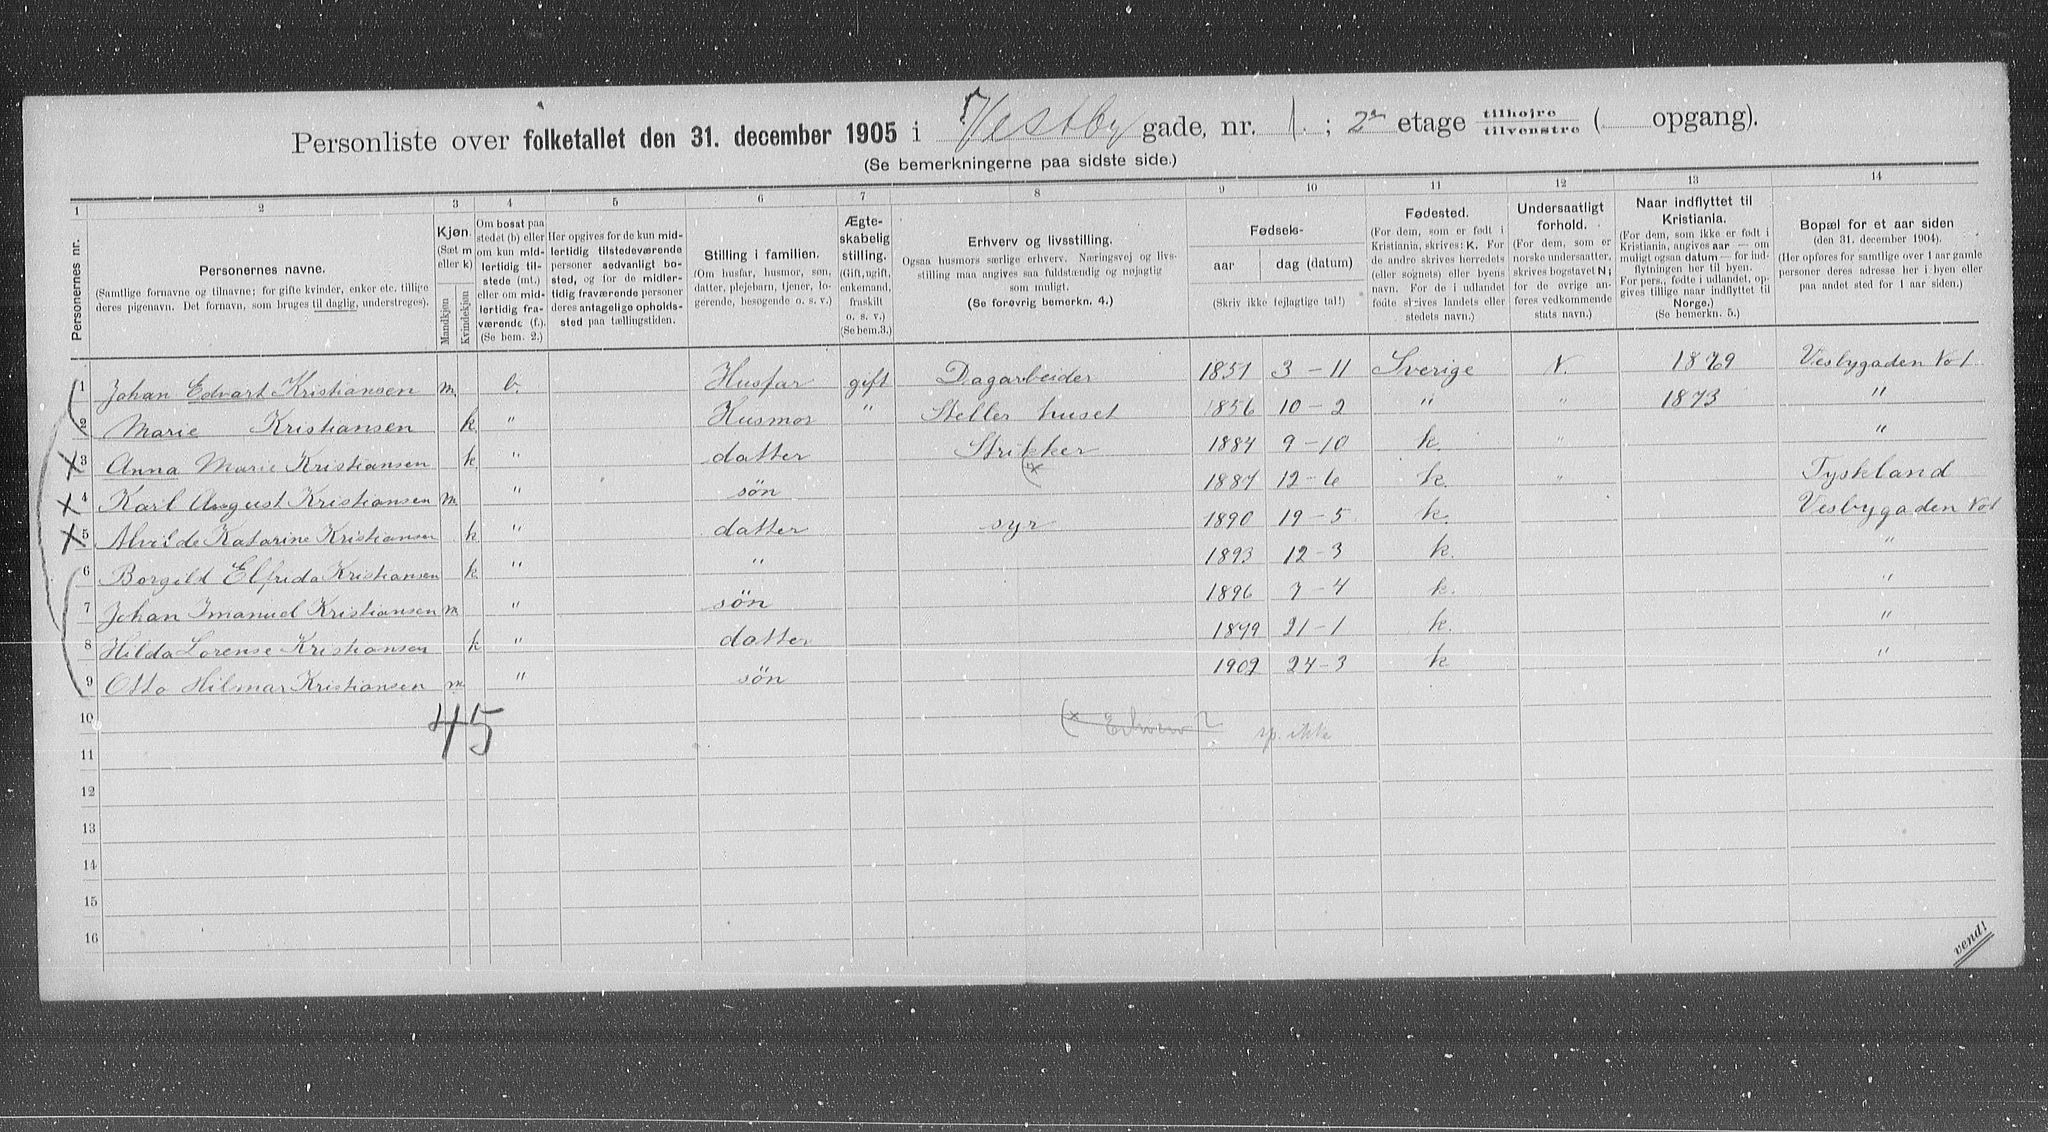 Personliste over folketallet den 31. december 1905 i Vestby gade, nr. 1. ; 2den etage tilhøjre tilvenstre ( opgang).
(Se bemerkningerne paa sidste side.)
1 2 3 4 5 6 7 8 9 10 11 12 13 14
Personernes nr.
Personernes navne.
(Samtlige fornavne og tilnavne; for gifte kvinder, enker etc. tillige deres pigenavn. Det fornavn, som bruges til daglig, understreges).
Kjøn. (Sæt m eller k)
Mandkjøn
Kvindekjøn
Om bosat paa stedet (b) eller om kun midlertidig tilstede (mt.) eller om midlertidig fraværende (f.) (Se bem. 2.)
Her opgives for de kun midlertidig tilstedeværende personer sedvanligt bosted, og for de midlertidig fraværende personer deres antagelige opholdssted paa tællingstiden.
Stilling i familien.
(Om husfar, husmor, søn, datter, plejebarn, tjener, logerende, besøgende o. s. v.)
Ægteskabelig stilling.
(Gift, ugift, enkemand, fraskilt o. s. v.) (Se bem.3.)
Erhverv og livsstilling.
Ogsaa husmors særlige erhverv. Næringsvej og livsstilling maa angives saa fuldstændig og nøjagtig som muligt.
(Se forøvrig bemerkn. 4.)
Fødsels-
aar dag (datum)
(Skriv ikke fejlagtige tal!)
Fødested.
(For dem, som er født i Kristiania, skrives: K. For de andre skrives herredets (eller sognets) eller byens navn. For de i udlandet fødte skrives landets eller stedets navn.)
Undersaatligt forhold.
(For dem, som er norske undersaatter, skrives bogstavet N; for de øvrige anføres vedkommende stats navn.)
Naar indflyttet til Kristiania.
(For dem, som ikke er født i Kristiania, angives aar — om muligt ogsaa datum — for indflytningen her til byen. For pers., fødte i udlandet, opgives tillige naar indflyttet til Norge.) (Se bemerkn. 5.)
Bopæl for et aar siden
(den 31. december 1904).
(Her opføres for samtlige over 1 aar gamle personer deres adresse her i byen eller paa andet sted for 1 aar siden.)
1 Johan Edvart Kristiansen m. b. Husfar gift Dagarbeider 1851 3-11 Sverige N. 1879 Vesbygaden No 1
2 Marie Kristiansen k " Husmor " Steller huset 1856 10-2 " " 1873 "
3 Anna Marie Kristiansen k " datter Strikker 1884 9-10 k. " "
4 Karl August Kristiansen m. " søn (x 1887 12-6 k. " Tyskland
5 Alvilde Katarine Kristiansen k " datter syr 1890 19-5 k. Vesbygaden No 1
6 Borgild Elfrida Kristiansen k " " 1893 12-3 k. "
7 Johan Imanuel Kristiansen m " søn 1896 7-4 k. "
8 Hilda Lorense Kristiansen k " datter 1899 21-1 k. "
9 Otto Hilmar Kristiansen m " søn 1902 24-3 k "
10 (x Erhverv? sp. ikke
45
11
12
13
14
15
16
vend!